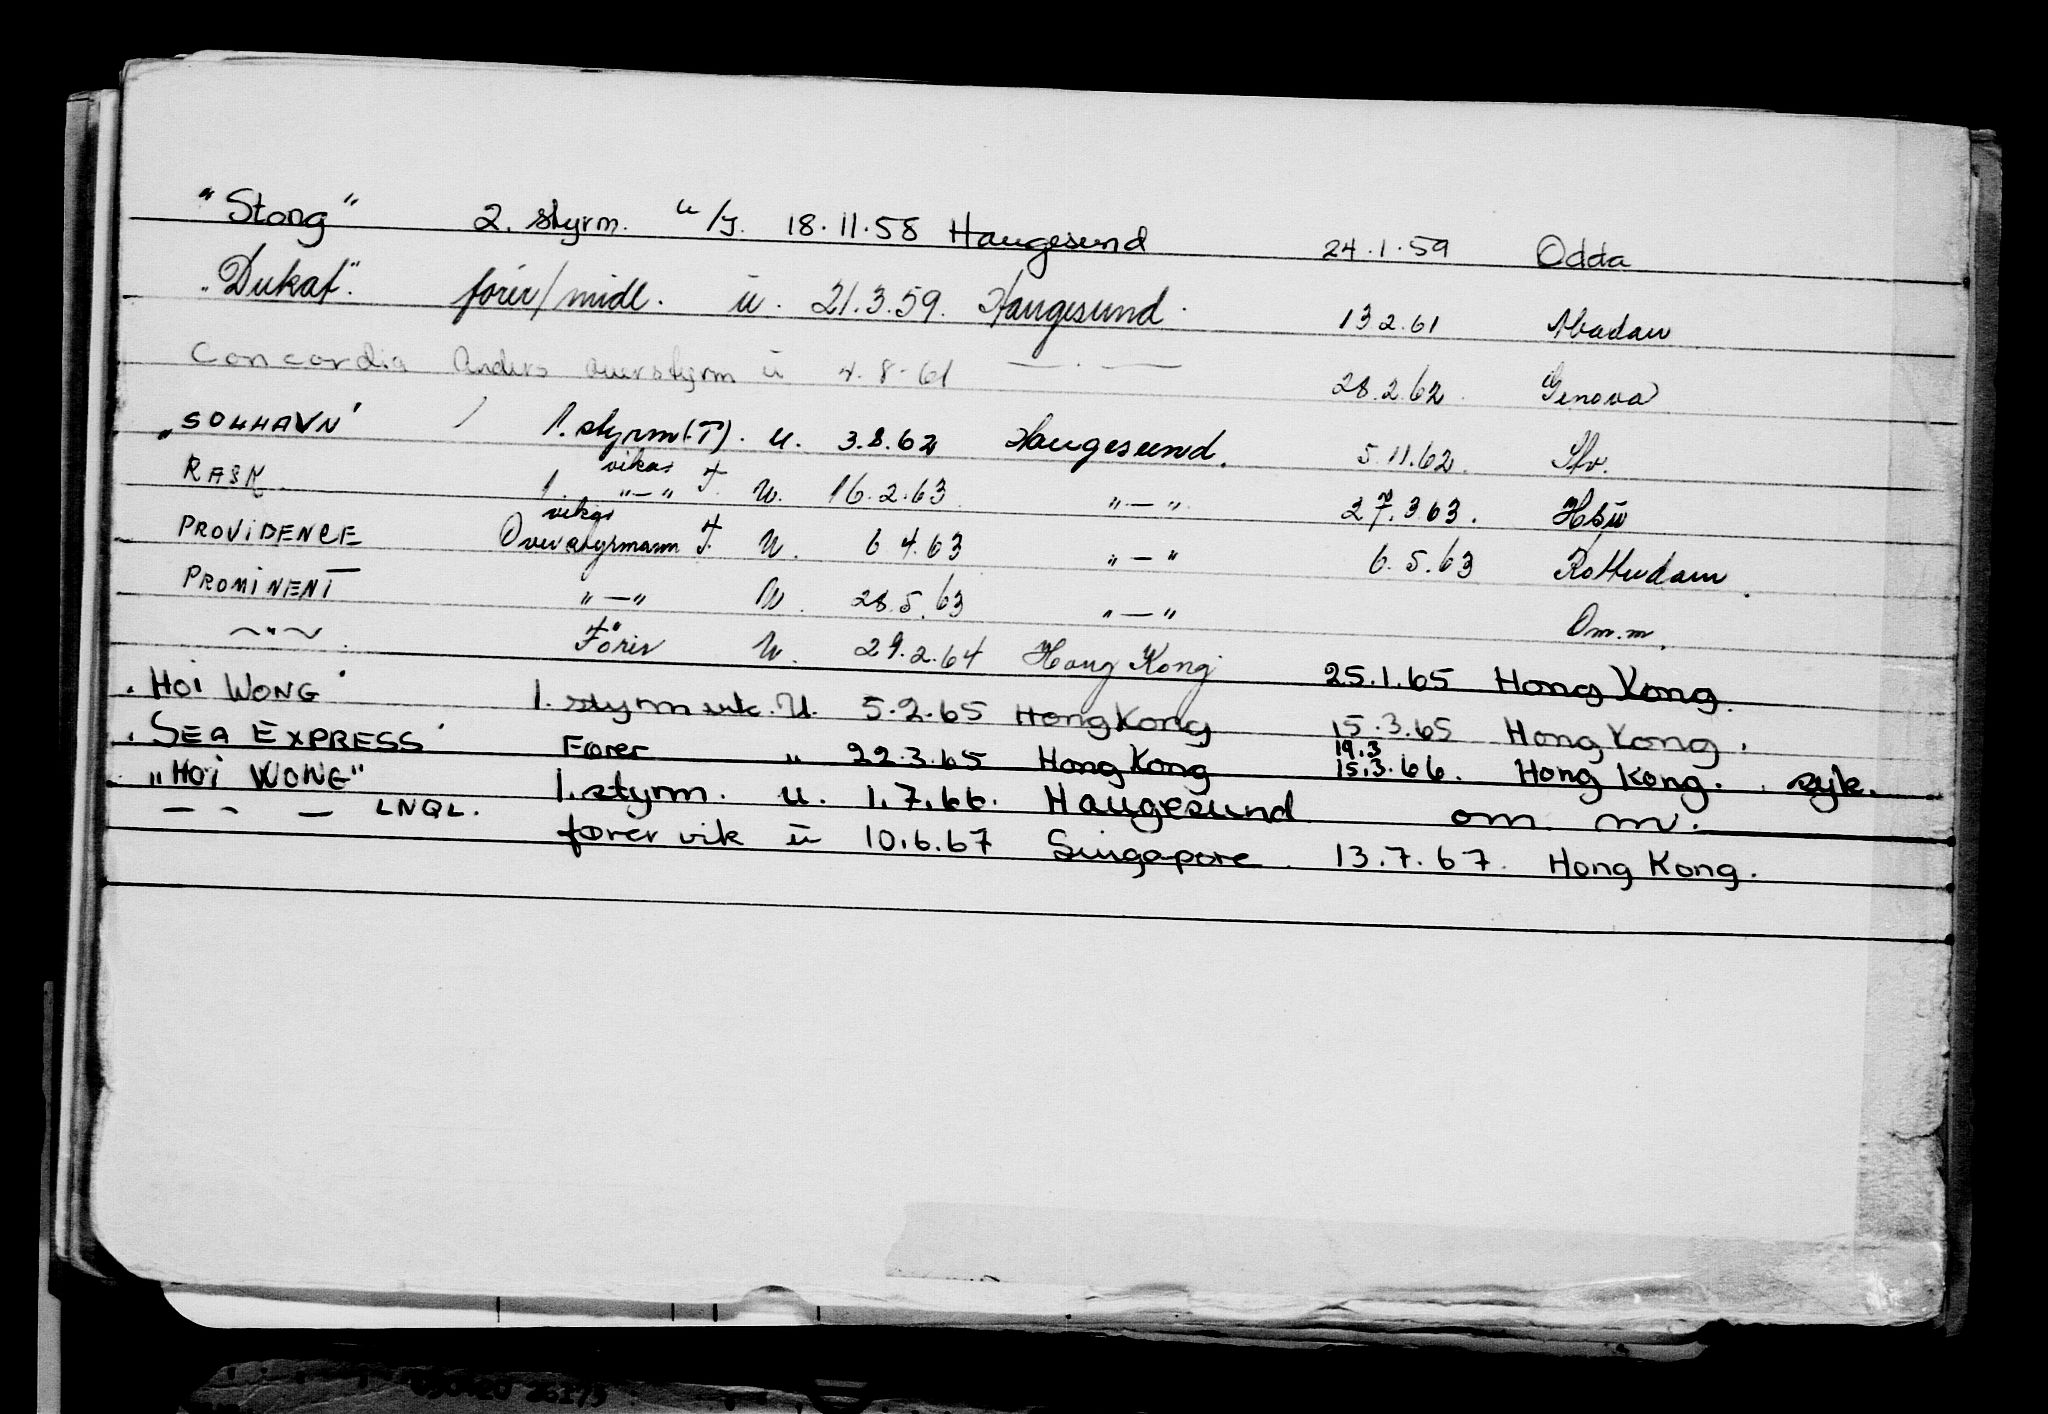 "Stong" 2. styrm. u/J. 18.11.58 Haugesund 24.1.59 Odda
"Dukat". fører/midl. u. 21.3.59. Haugesund. 13 2.61 Abadan
Concordia Anders overstyrm u 4.8.61 — . — 28.2.62. Genova
"SOLHAVN" 1. styrm(T). u. 3.8.62 Haugesund. 5.11.62. Stv.
RASK. 1. vikar "—" F. U. 16.2.63. "—" 27.3.63.
PROVIDENCE vikar Overstyrmann F. U. 6 4.63 "—" 6.5.63 Rotterdam.
PROMINENT "—" U. 28.5.63 "—" Om.m.
—"— Förer U. 29.2.64 Hong Kong 25.1.65 Hong Kong.
"HOI WONG" 1. styrm vik. U. 5.2.65 Hong Kong 15.3.65 Hong Kong.
"SEA EXPRESS" Fører " 22.3.65 Hong Kong 19.3 15.3.66. Hong Kong. syk.
"HOI WONG" 1. styrm. u. 1.7.66. Haugesund om m.
— - — LNQL. fører vik u 10.6.67 Singapore. 13.7.67. Hong Kong.